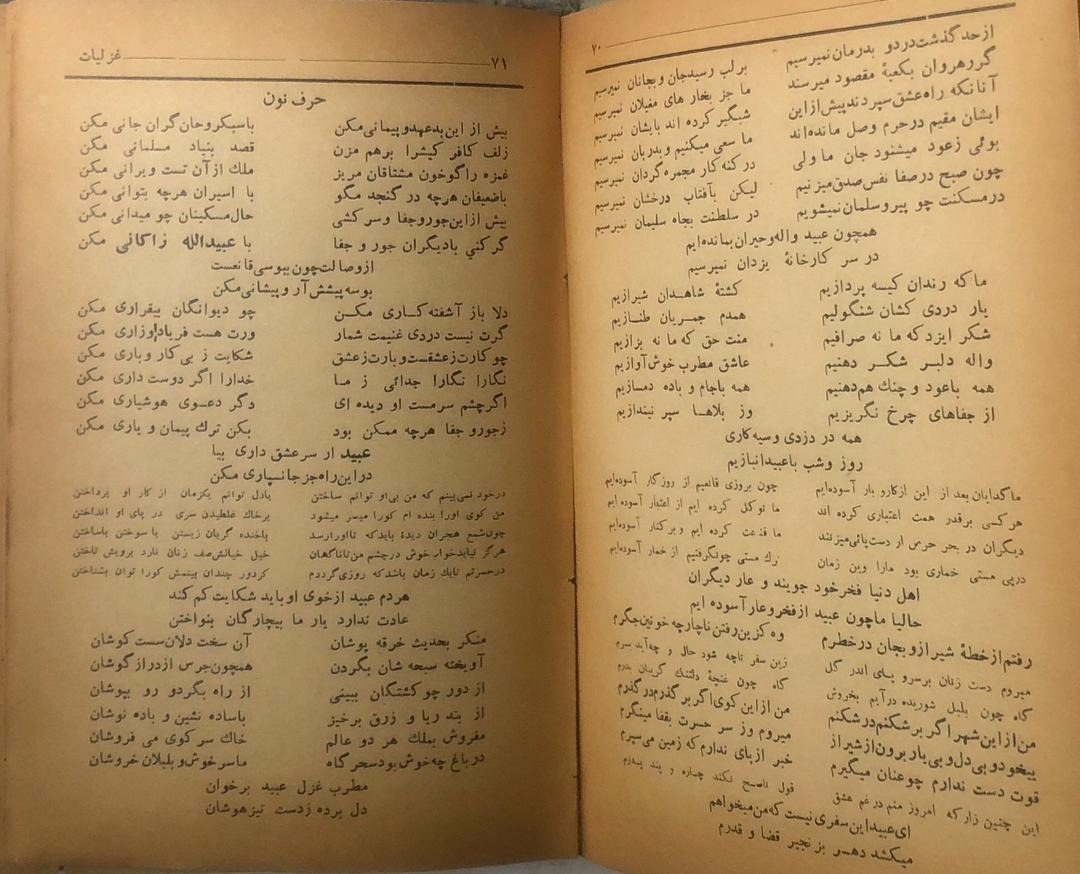 ۷۰
از حد گذشت درد و بدرمان نمیرسیم بر لب رسید جان و بجانان نمیرسیم
گر رهروان بکعبۀ مقصود میرسند ما جز بخار های مغیلان نمیرسیم
آنانکه راه عشق سپردند پیش از این شبگیر کرده اند بایشان نمیرسیم
ایشان مقیم در حرم وصل مانده اند ما سعی میکنیم و بدربان نمیرسیم
بوئی زعود میشنود جان ما ولی در کنه کار مجمره گردان نمیرسیم
چون صبح در صفا نفس صدق میزنیم لیکن بآفتاب درخشان نمیرسیم
در مسکنت چو پیرو سلمان نمیشویم در سلطنت بجاه سلیمان نمیرسیم
همچون عبید واله وحیران بمانده ایم
در سر کارخانۀ یزدان نمیرسیم
ما که رندان کیسه پردازیم کشتۀ شاهدان شیرازیم
یار دردی کشان شنگولیم همدم جمریان طنازیم
شکر ایزد که ما نه صرافیم منت حق که ما نه بزازیم
واله دلبر شکر دهنیم عاشق مطرب خوش آوازیم
همه باعود و چنك هم دهنیم همه باجام و باده دمسازیم
از جفاهای چرخ نگریزیم وز بلاها سپر نیندازیم
همه در دزدی و سیه کاری
روز وشب باعبید انبازیم
ما گدایان بعد از این از کار و بار آسوده ایم چون بروزی قانعیم از روزگار آسوده ایم
هر کسی بر قدر همت اعتباری کرده اند ما توکل کرده ایم از اعتبار آسوده ایم
دیگران در بحر حرص ار دست پائی میزنند ما قناعت کرده ایم و بر کنار آسوده ایم
درپی مستی خماری بود مارا وین زمان ترك مستی چون گرفتیم از خمار آسوده ایم
اهل دنیا فخر خود جویند و عار دیگران
حالیا ماچون عبید از فخر و عار آسوده ایم
رفتم از خطۀ شیراز و بجان در خطرم وه کزین رفتن ناچار چه خونین جگرم
میروم دست زنان بر سر و پای اندر گل زین سفر تاچه شود حال و چه آید بسرم
گاه چون بلبل شوریده در آیم بخروش گاه چون غنچۀ دلتنك گریبان بدرم
من از این شهر اگر بر شکنم در شکنم من از این کوی اگر بر گذرم در گذرم
بیخود و بی دل و بی یار برون از شیراز میروم وز سر حسرت بقفا مینگرم
قوت دست ندارم چو عنان میگیرم خبر از پای ندارم که زمین می سپرم
این چنین زار که امروز منم در غم عشق قول ناصح نکند چاره و پند پدرم
ای عبید این سفری نیست که من میخواهم
میکشد دهر بزنجیر قضا و قدرم
۷۱ غزلیات
حرف نون
بیش از این بد عهد و پیمانی مکن باسبکروحان گران جانی مکن
زلف کافر کیش را برهم مزن قصد بنیاد مسلمانی مکن
غمزه را گو خون مشتاقان مریز ملك از آن تست ویرانی مکن
باضعیفان هرچه در گنجد مگو با اسیران هرچه بتوانی مکن
بیش از این جور و جفا و سر کشی حال مسکینان چو میدانی مکن
گر کنی بادیگران جور و جفا با عبیدالله زاکانی مکن
از وصالت چون ببوسی قانعست
بوسه پیشش آر و پیشانی مکن
دلا باز آشفته کاری مکن چو دیوانگان بیقراری مکن
گرت نیست دردی غنیمت شمار ورت هست فریاد و زاری مکن
چو کارت ز عشقست و بارت ز عشق شکایت ز بی کار و باری مکن
نگارا نگارا جدائی ز ما خدارا اگر دوست داری مکن
اگر چشم سرمست او دیده ای دگر دعوی هوشیاری مکن
زجور و جفا هرچه ممکن بود بکن ترك پیمان و یاری مکن
عبید ار سر عشق داری بیا
در این راه جز جانسپاری مکن
درخود نمی بینم که من بی او توانم ساختن یادل توانم یکزمان از کار او پرداختن
من کوی اورا بنده ام کورا میسر میشود برخاك غلطیدن سری در پای او انداختن
چون شمع هجران دیدۀ باید که تا او را رسد باخنده گریان زیستن یا سوختن باساختن
هرگز نیاید خواب خوش در چشم من تاناگهان خیل خیالش صف زنان نارد برویش تاختن
درحسرتم تایك زمان باشد که روزی گرددم کزدور چندان بینمش کورا توان بشناختن
هردم عبید از خوی او باید شکایت کم کند
عادت ندارد یار ما بیچارگان بنواختن
منکر بحدیث خرقه پوشان آن سخت دلان سست کوشان
آویخته سبحه شان بگردن همچون جرس از دراز گوشان
از دور چو کشتگان ببینی از راه بگرد و رو بپوشان
از بند ریا و زرق برخیز باساده نشین و باده نوشان
مفروش بملك هر دو عالم خاك سر کوی می فروشان
در باغ چه خوش بود سحر گاه ما سرخوش و بلبلان خروشان
مطرب غزل عبید برخوان
دل برده زدست تیزهوشان